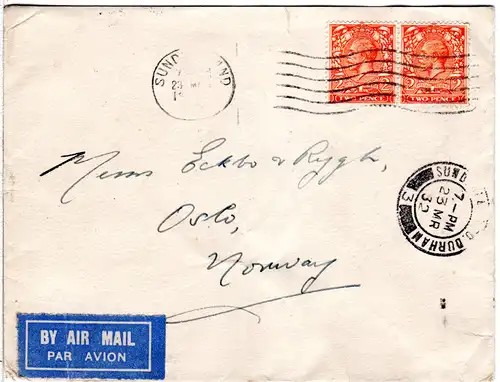 SUNDERLAND
23 MR
TWO PENCE TWO PENCE
Messrs Eckbo & Rygh,
Oslo,
Norway
SUND
CO. DURHAM
7 - PM
23 MR
32
3
BY AIR MAIL
PAR AVION